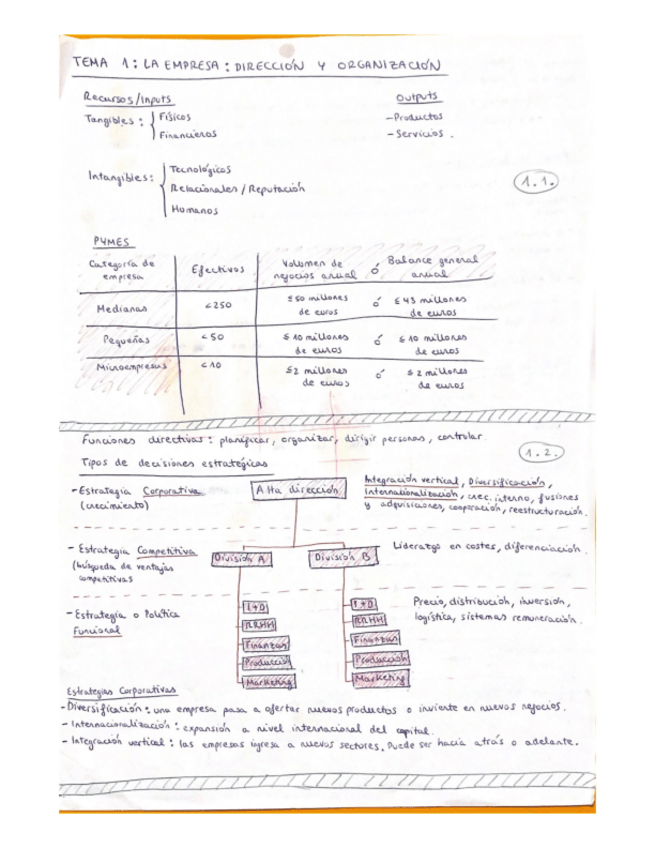 TEMA 1: LA EMPRESA: DIRECCIÓN Y ORGANIZACIÓN
Recursos/Inputs
Outputs
Tangibles: Físicos
Financieros
- Productos
- Servicios.
Intangibles: Tecnológicos
Relacionales / Reputación
Humanos
1.1.
PYMES
Categoría de empresa Efectivos Volumen de negocios anual ó Balance general anual
Medianas <250 ≤50 millones de euros ó ≤43 millones de euros
Pequeñas <50 ≤10 millones de euros ó ≤10 millones de euros
Microempresas <10 ≤2 millones de euros ó ≤2 millones de euros
Funciones directivas: planificar, organizar, dirigir personas, controlar
1.2.
Tipos de decisiones estratégicas
- Estrategia Corporativa
(crecimiento)
Alta dirección
Integración vertical, Diversificación,
Internacionalización, crec. interno, fusiones
y adquisiciones, cooperación, reestructuración.
- Estrategia Competitiva
(búsqueda de ventajas
competitivas
División A
División B
Liderazgo en costes, diferenciación.
- Estrategia o Política
Funcional
I+D
RRHH
Finanzas
Producción
Marketing
I+D
RRHH
Finanzas
Producción
Marketing
Precio, distribución, inversión,
logística, sistemas remuneración.
Estrategias Corporativas
- Diversificación: una empresa pasa a ofertar nuevos productos o invierte en nuevos negocios.
- Internacionalización: expansión a nivel internacional del capital.
- Integración vertical: las empresas ingresa a nuevos sectores. Puede ser hacia atrás o adelante.